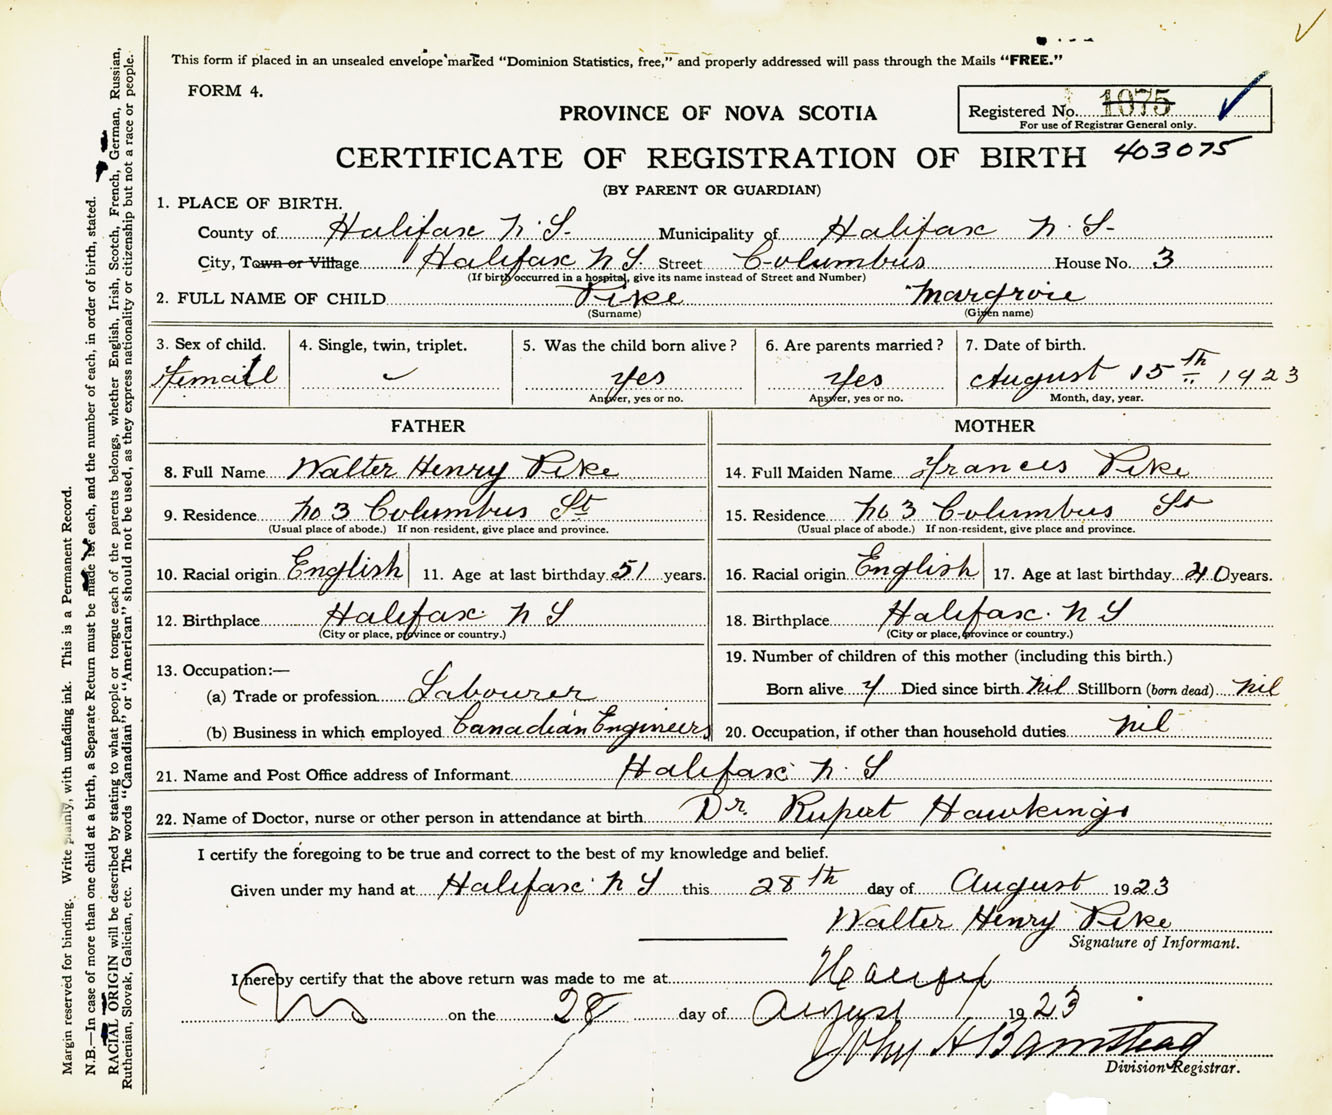 This form if placed in an unsealed envelope marked "Dominion Statistics, free," and properly addressed will pass through the Mails "FREE."
FORM 4.
PROVINCE OF NOVA SCOTIA
Registered No. 1075
For use of Registrar General only.
CERTIFICATE OF REGISTRATION OF BIRTH 403075
(BY PARENT OR GUARDIAN)
1. PLACE OF BIRTH.
County of Halifax N.S. Municipality of Halifax N S
City, Town or Village Halifax N S Street Columbus House No. 3
(If birth occurred in a hospital, give its name instead of Street and Number)
2. FULL NAME OF CHILD Pike Margroie
(Surname) (Given name)
3. Sex of child. 4. Single, twin, triplet. 5. Was the child born alive? 6. Are parents married? 7. Date of birth.
Femail yes yes August 15th 1923
Answer, yes or no. Answer, yes or no. Month, day, year.
FATHER MOTHER
8. Full Name Walter Henry Pike 14. Full Maiden Name Frances Pike
9. Residence No 3 Columbus St 15. Residence No 3 Columbus St
(Usual place of abode.) If non-resident, give place and province. (Usual place of abode.) If non-resident, give place and province.
10. Racial origin English 11. Age at last birthday 51 years. 16. Racial origin English 17. Age at last birthday 40 years.
12. Birthplace Halifax N S 18. Birthplace Halifax N S
(City or place, province or country.) (City or place, province or country.)
13. Occupation:— 19. Number of children of this mother (including this birth.)
(a) Trade or profession Labourer Born alive Died since birth Nil Stillborn (born dead) Nil
(b) Business in which employed Canadian Engineers 20. Occupation, if other than household duties Nil
21. Name and Post Office address of Informant Halifax N S
22. Name of Doctor, nurse or other person in attendance at birth Dr. Rupert Hawkings
I certify the foregoing to be true and correct to the best of my knowledge and belief.
Given under my hand at Halifax N S this 28th day of August 1923
Walter Henry Pike
Signature of Informant.
I hereby certify that the above return was made to me at Halifax
on the 28 day of August 1923
John H Barnstead
Division Registrar.
Margin reserved for binding. Write plainly, with unfading ink. This is a Permanent Record.
N.B.—In case of more than one child at a birth, a Separate Return must be made for each, and the number of each, in order of birth, stated.
RACIAL ORIGIN will be described by stating to what people or tongue each of the parents belongs, whether English, Irish, Scotch, French, German, Russian,
Ruthenian, Slovak, Galician, etc. The words "Canadian" or "American" should not be used, as they express nationality or citizenship but not a race or people.